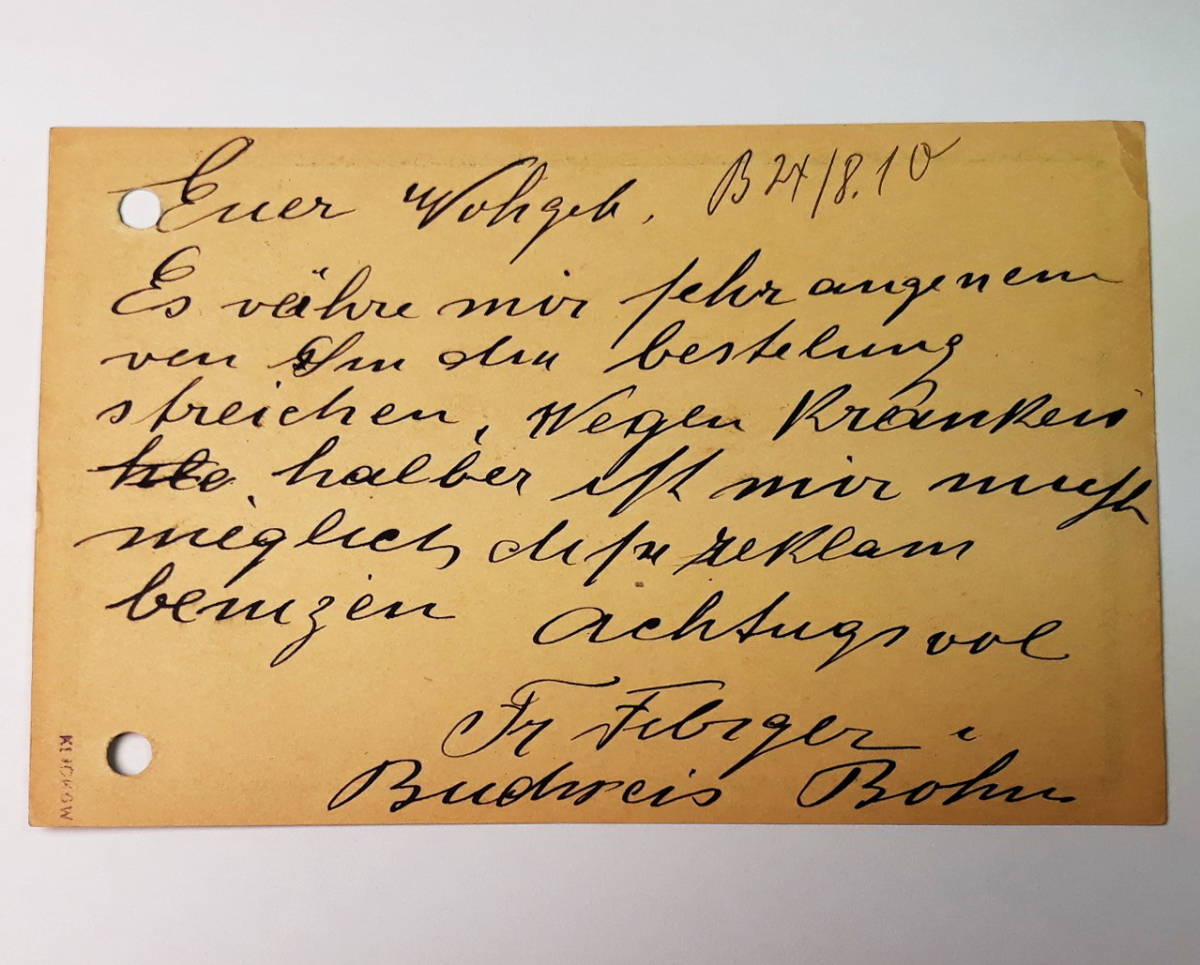 Euer Wohgeb. B 24/8.10
Es währe mir sehr angenem
von den bestelung
streichen, Wegen Kränkeis
halber ist mir nicht
möglich diese reklam
benuzen Achtugsvol
Fr Fibiger
Budweis Böhm
KLUCKOW